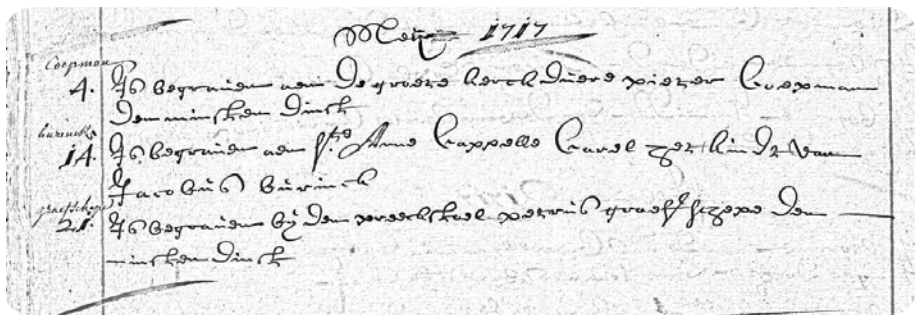 Meij 1717
Coepman
4. Is begraven aen de groote kerckduere pieter Coepman
den minsten dinst
burinck
14. Is begraven aen Ste Anne Cappelle Carel het kindt van
Jacobus burinck
21. Is begraven bij den preeckstoel petrus graefschepe den
minsten dinst